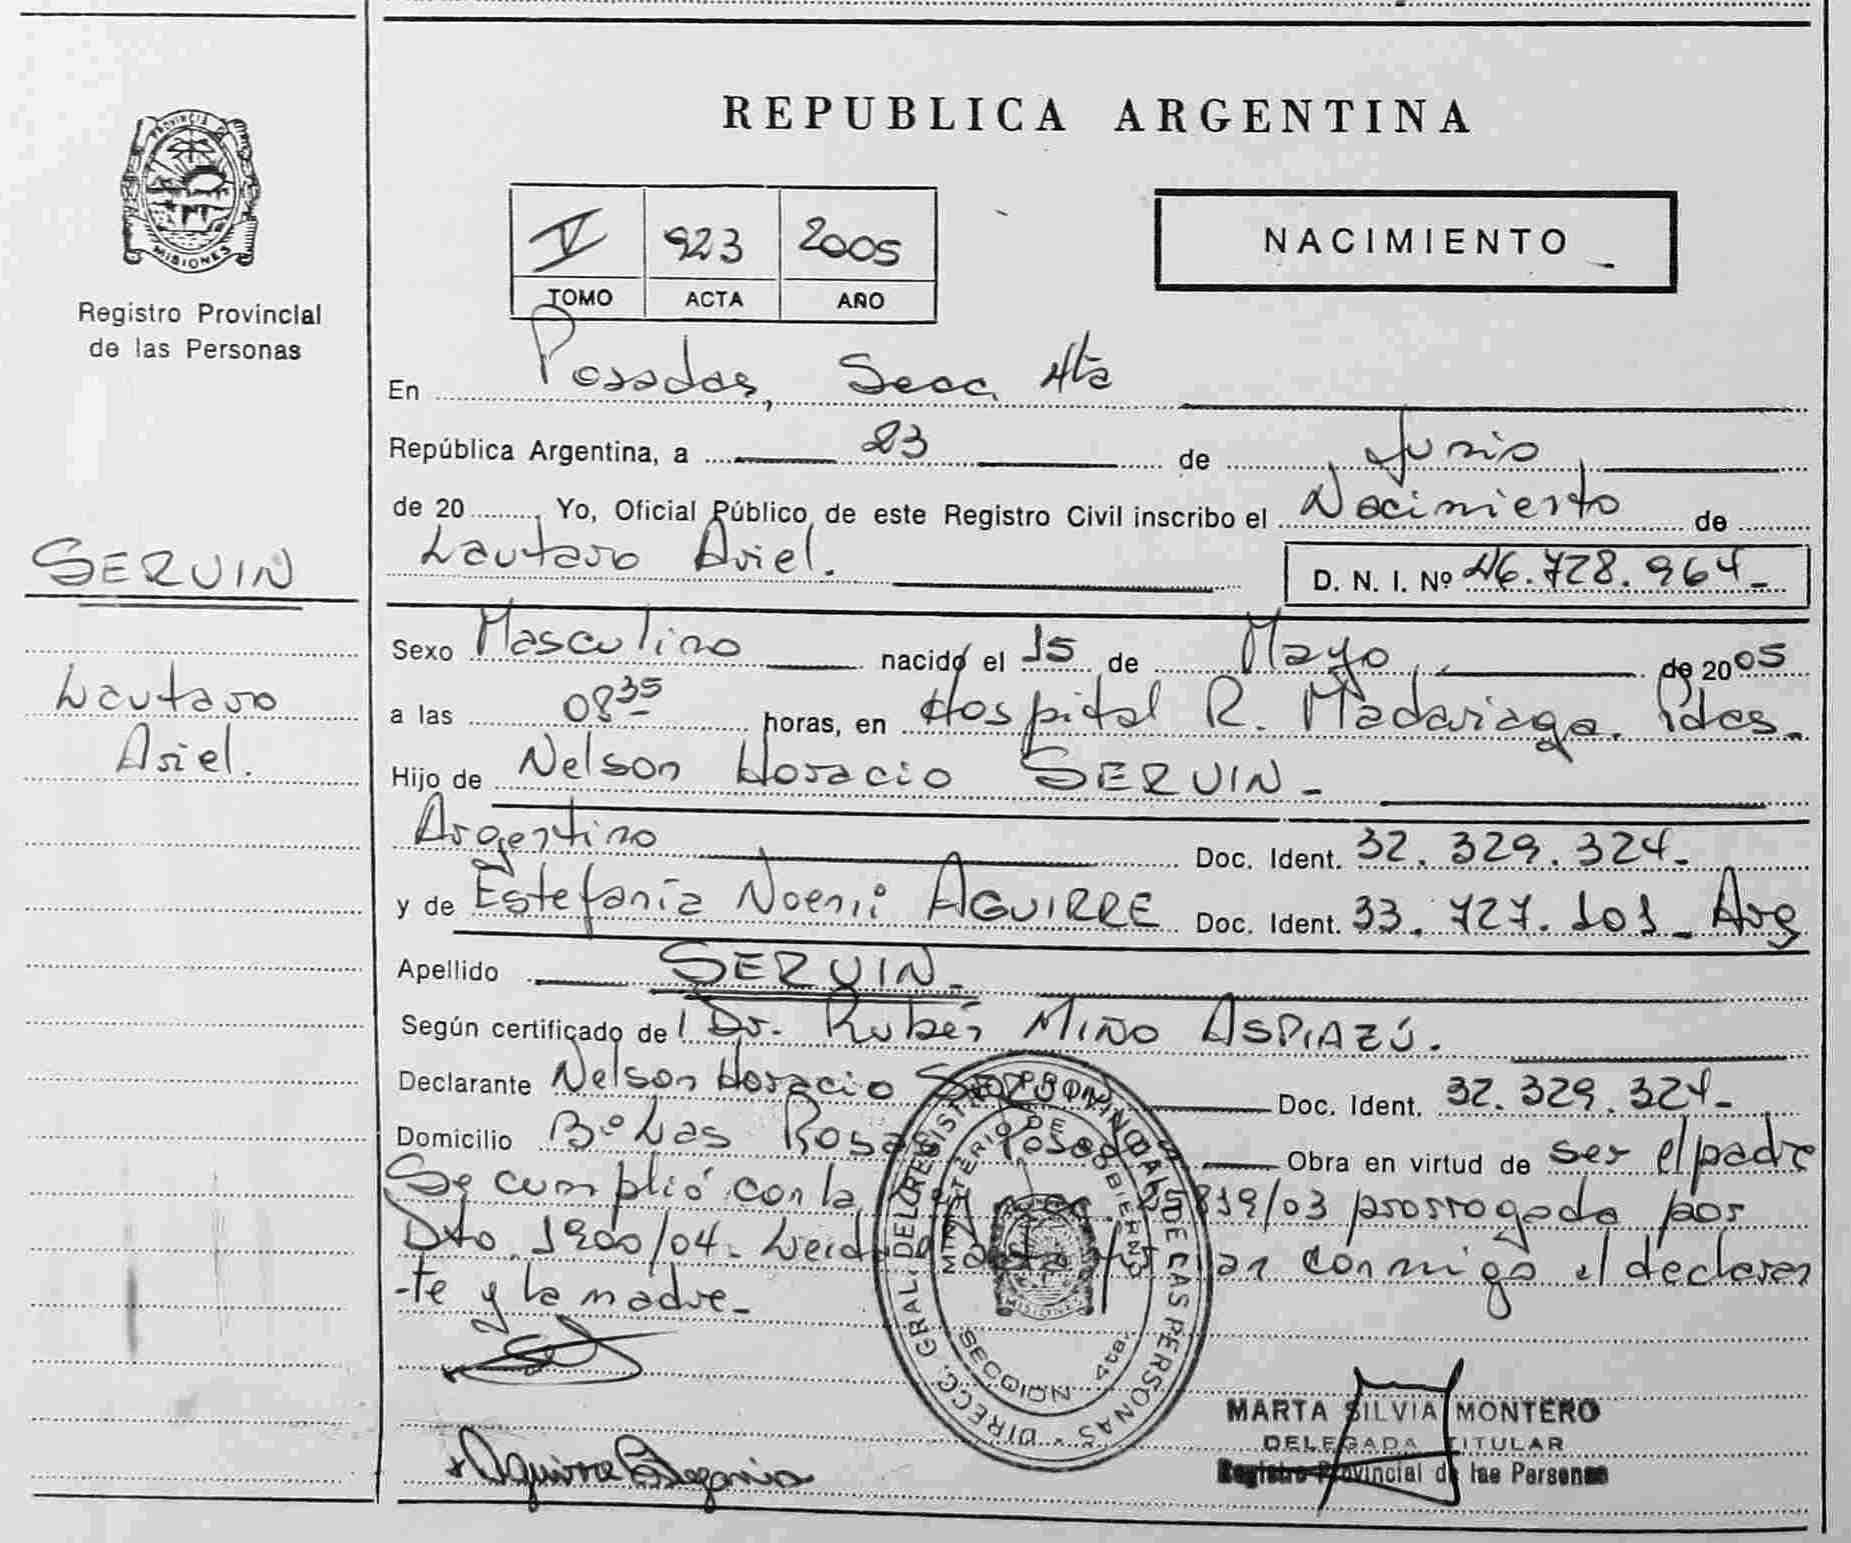 REPUBLICA ARGENTINA
PROVINCIA DE
MISIONES
Registro Provincial
de las Personas
V 923 2005
TOMO ACTA AÑO
NACIMIENTO
En Posadas, Secc. 4ta
República Argentina, a 23 de Junio
de 20 Yo, Oficial Público de este Registro Civil inscribo el Nacimiento de
Lautaro Ariel. D. N. I. Nº 46.728.964-
SERVIN
Lautaro
Ariel.
Sexo Masculino nacido el 15 de Mayo de 2005
a las 08 35 horas, en Hospital R. Madariaga. Pdas-
Hijo de Nelson Horacio SERVIN-
Argentino Doc. Ident. 32.329.324-
y de Estefanía Noemí AGUIRRE Doc. Ident. 33.727.101- Arg
Apellido SERVIN-
Según certificado de Dr. Rubén MIÑO ASPIAZÚ.
Declarante Nelson Horacio Doc. Ident. 32.329.324-
Domicilio Bº Las Rosas Posadas Obra en virtud de ser el padre
Se cumplió con la 25819/03 prorrogada por
Dto. 1900/04- Leida acta conmigo el declaran
-te y la madre-
DIRECC. GRAL. DEL REGISTRO PROVINCIAL DE LAS PERSONAS
MINISTERIO DE GOBIERNO
MISIONES
SECCION 4ta.
MARTA SILVIA MONTERO
DELEGADA TITULAR
Registro Provincial de las Personas
Aguirre Estefania